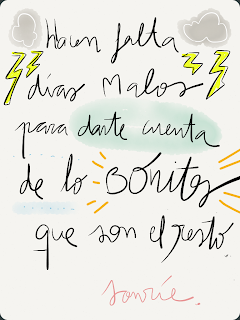 Hacen falta
días malos
para darte cuenta
de lo bonitos
que son el resto.
sonríe.